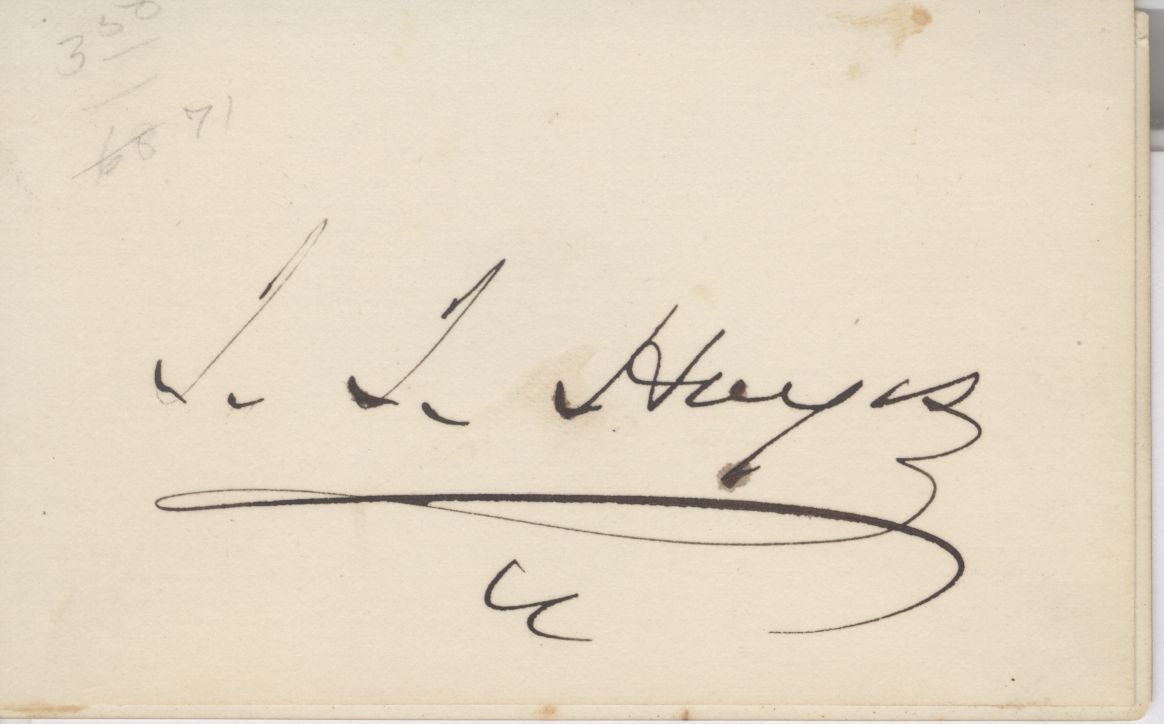 3 50
68 71
I. I. Hayes